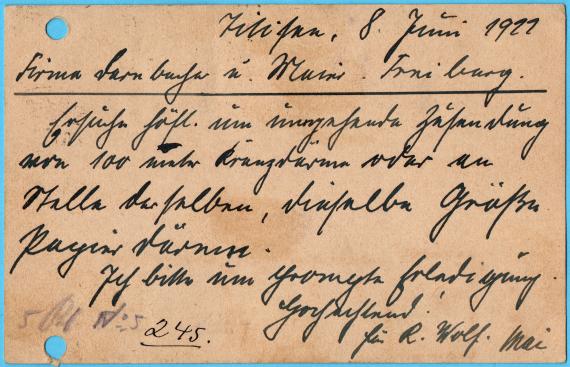 Titisee, 8. Juni 1921
Firma Dernbacher u. Maier. Freiburg.
Ersuche höfl. um umgehende Zusendung
von 100 meter Kranzdärme oder an
Stelle derselben, dieselbe Größe
Papier därme.
Ich bitte um prompte Erledigung.
Hochachtend!
für R. Wolf. Mai
245.